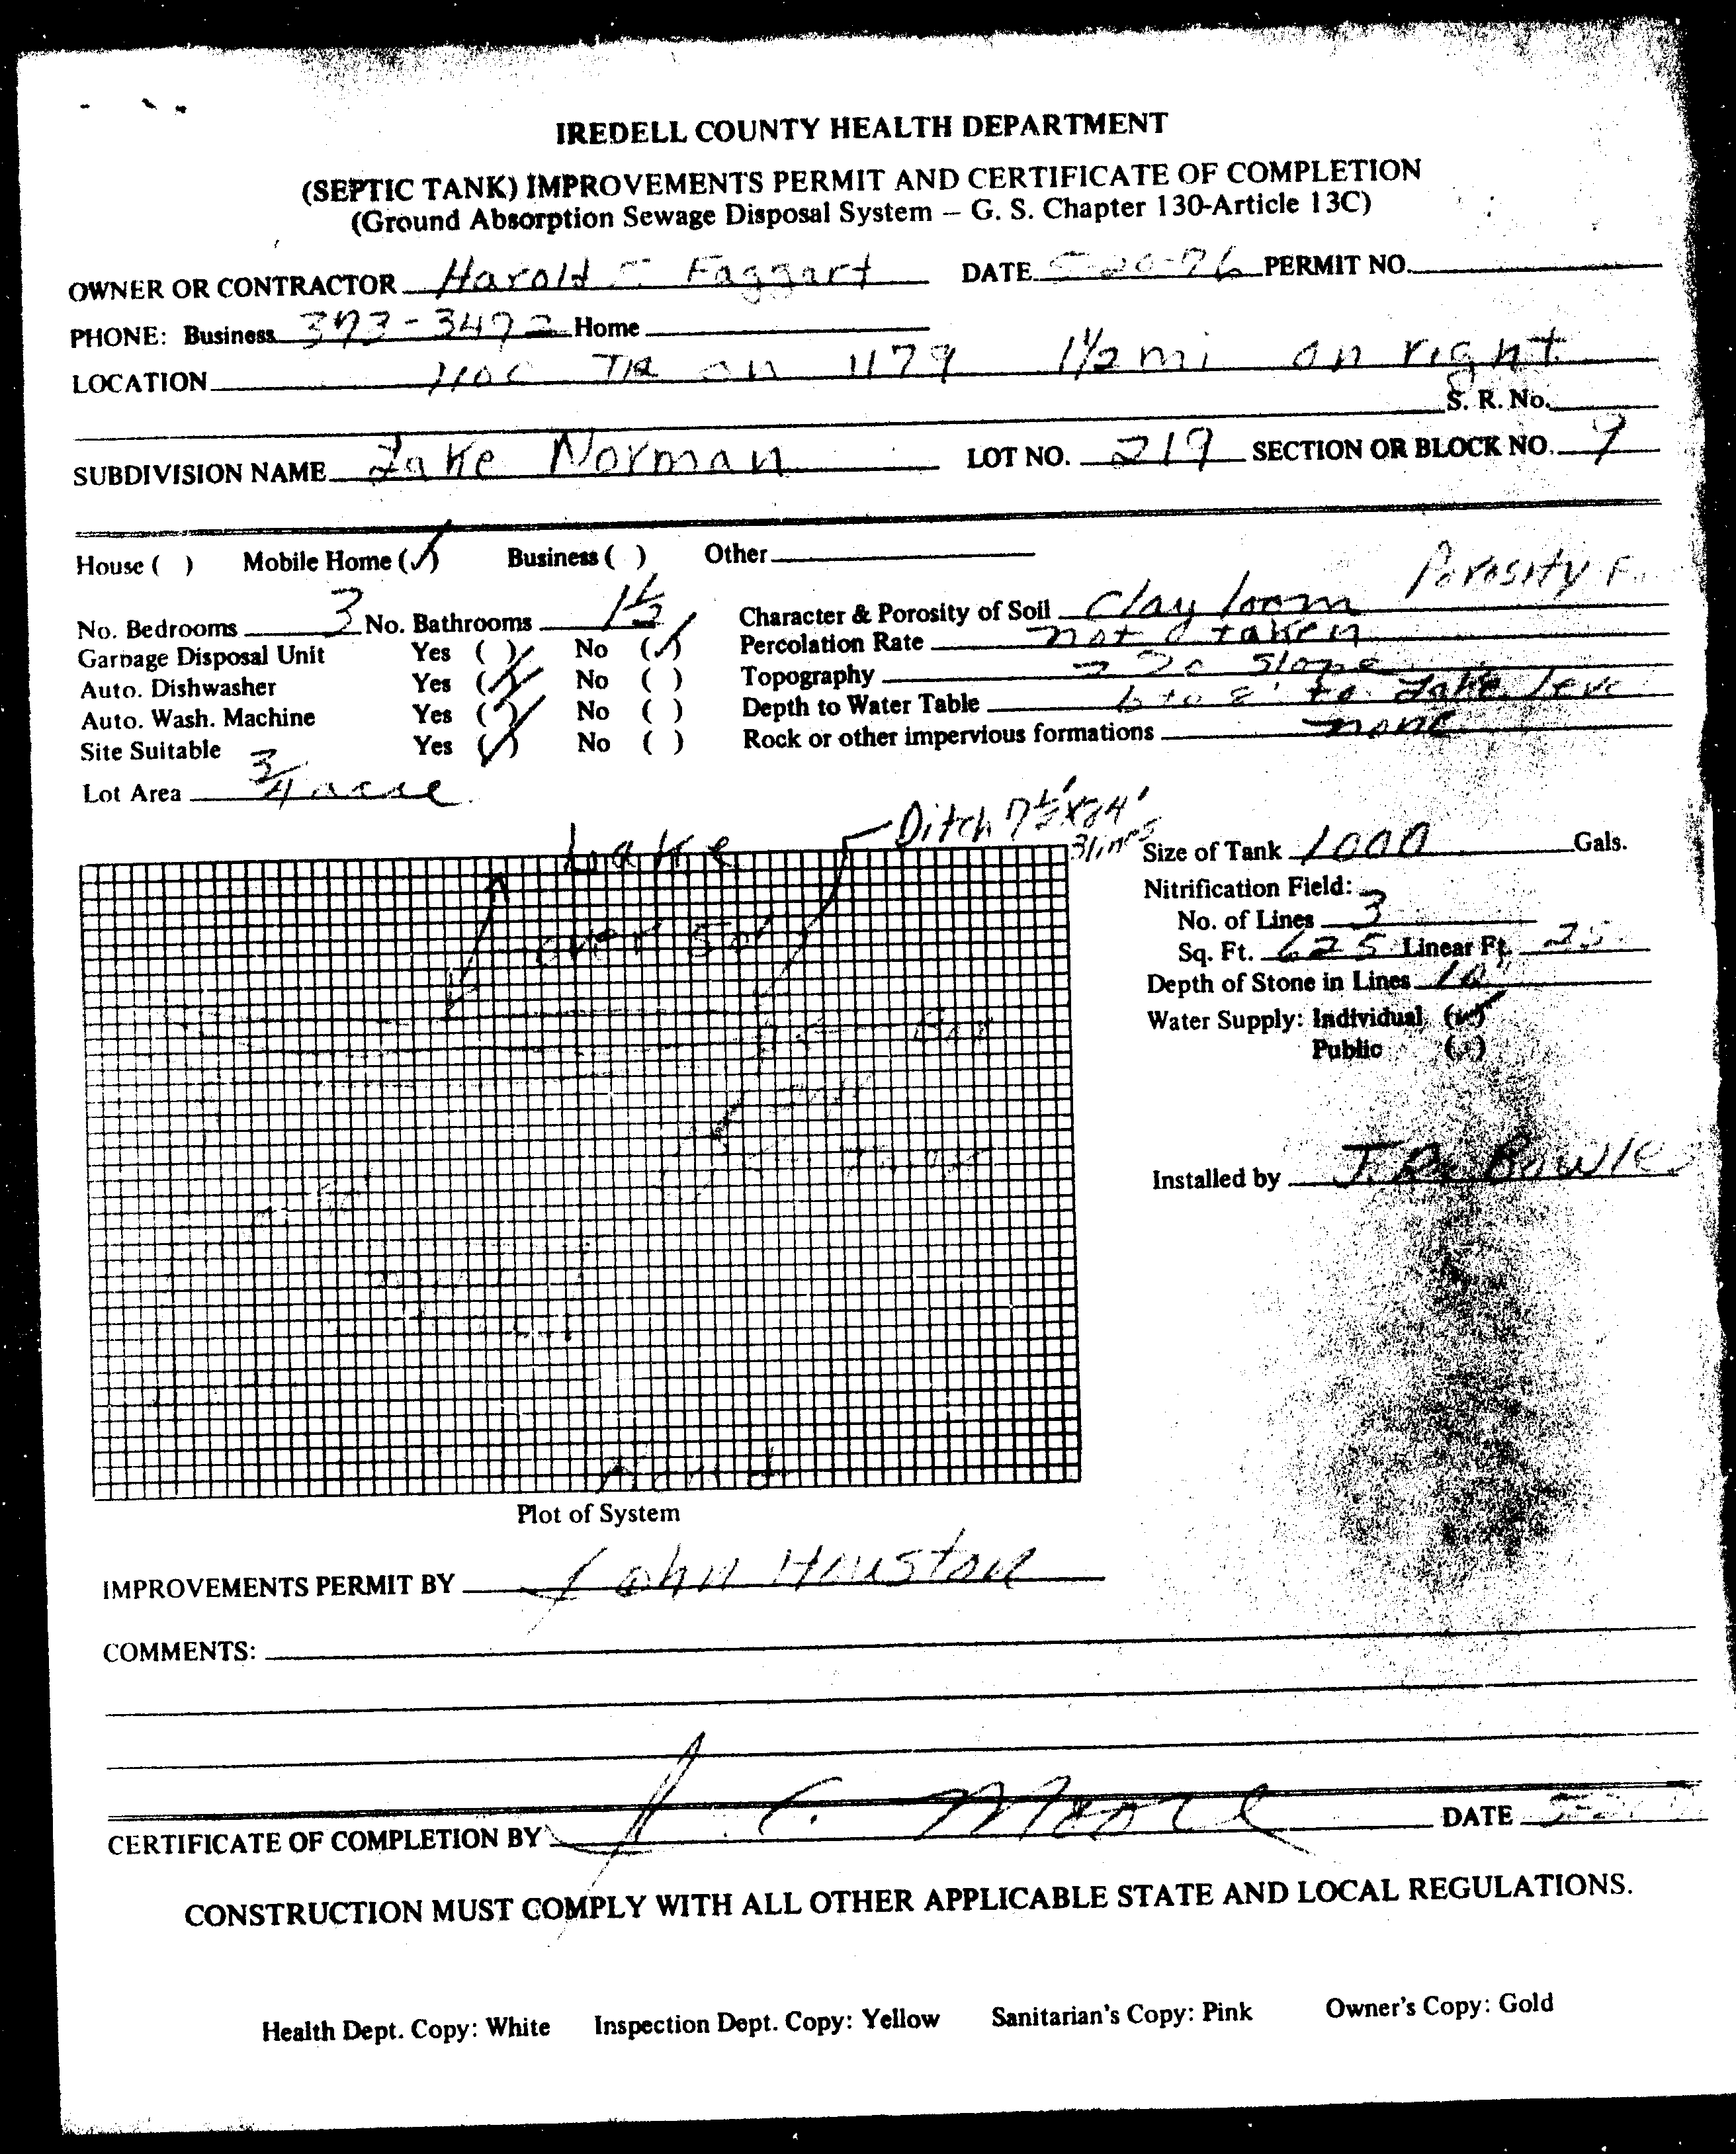 IREDELL COUNTY HEALTH DEPARTMENT
(SEPTIC TANK) IMPROVEMENTS PERMIT AND CERTIFICATE OF COMPLETION
(Ground Absorption Sewage Disposal System – G. S. Chapter 130-Article 13C)
OWNER OR CONTRACTOR Harold Faggart DATE PERMIT NO.
PHONE: Business Home
LOCATION TR on 1179 1½ mi on right
S. R. No.
SUBDIVISION NAME Lake Norman LOT NO. 219 SECTION OR BLOCK NO. 9
House ( ) Mobile Home (✓) Business ( ) Other
Porosity F.
No. Bedrooms 3 No. Bathrooms 1½ Character & Porosity of Soil Clay loom
Garbage Disposal Unit Yes ( ) No (✓) Percolation Rate not taken
Auto. Dishwasher Yes (✓) No ( ) Topography slope
Auto. Wash. Machine Yes (✓) No ( ) Depth to Water Table 6 to 8' to Lake leve
Site Suitable Yes (✓) No ( ) Rock or other impervious formations none
Lot Area 3/4 acre
Lake
Ditch 7½'x84'
3 lines
over 50'
Size of Tank 1000 Gals.
Nitrification Field:
No. of Lines 3
Sq. Ft. 625 Linear Ft.
Depth of Stone in Lines
Water Supply: Individual (✓)
Public ( )
Installed by J. R. Bowle
Plot of System
IMPROVEMENTS PERMIT BY John Houston
COMMENTS:
CERTIFICATE OF COMPLETION BY C. Moore DATE
CONSTRUCTION MUST COMPLY WITH ALL OTHER APPLICABLE STATE AND LOCAL REGULATIONS.
Health Dept. Copy: White Inspection Dept. Copy: Yellow Sanitarian's Copy: Pink Owner's Copy: Gold